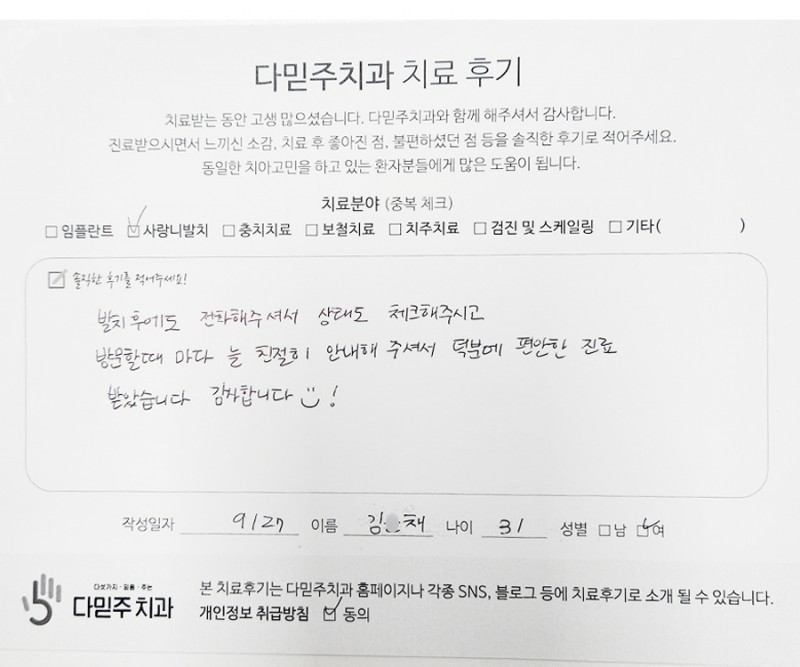 다믿주치과 치료 후기
치료받는 동안 고생 많으셨습니다. 다믿주치과와 함께 해주셔서 감사합니다.
진료받으시면서 느끼신 소감, 치료 후 좋아진 점, 불편하셨던 점 등을 솔직한 후기로 적어주세요.
동일한 치아고민을 하고 있는 환자분들에게 많은 도움이 됩니다.
치료분야 (중복 체크)
□ 임플란트 ☑ 사랑니발치 □ 충치치료 □ 보철치료 □ 치주치료 □ 검진 및 스케일링 □ 기타( )
솔직한 후기를 적어주세요!
발치 후에도 전화해주셔서 상태도 체크해주시고
방문할때 마다 늘 친절히 안내해 주셔서 덕분에 편안한 진료
받았습니다 감사합니다 !
작성일자 9/27 이름 김 채 나이 31 성별 □ 남 ☑ 여
다섯가지 · 믿음 · 주는
다믿주치과
본 치료후기는 다믿주치과 홈페이지나 각종 SNS, 블로그 등에 치료후기로 소개 될 수 있습니다.
개인정보 취급방침 ☑ 동의